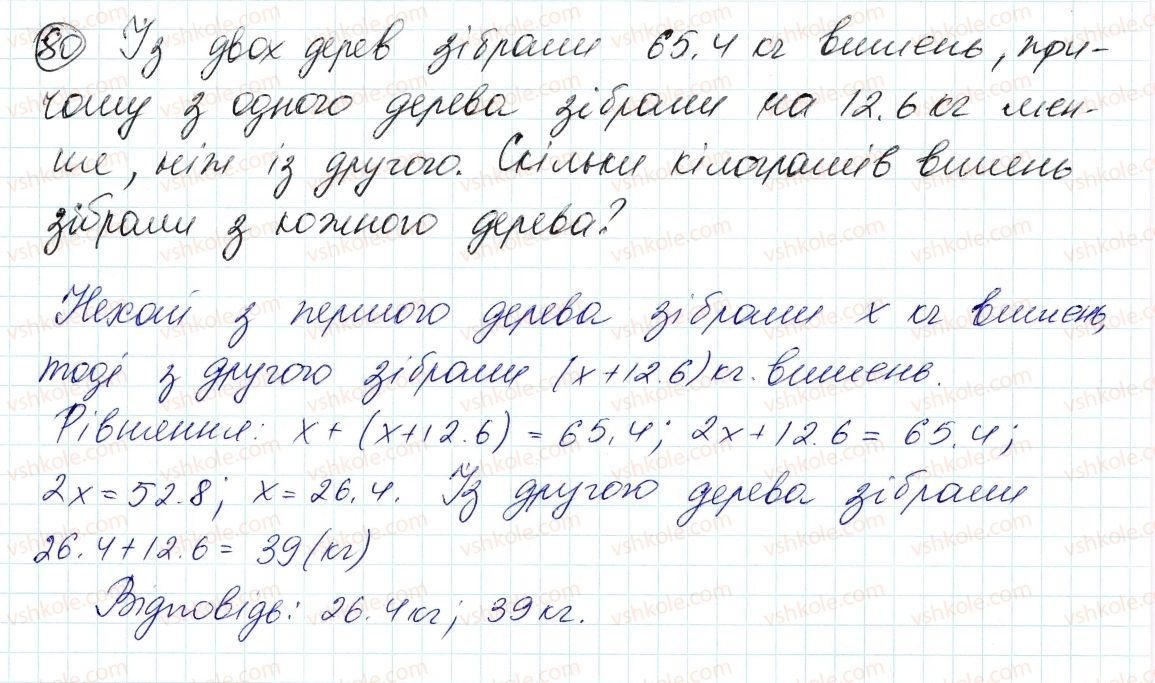 80 Із двох дерев зібрали 65.4 кг вишень, при-
чому з одного дерева зібрали на 12.6 кг мен-
ше, ніж із другого. Скільки кілограмів вишень
зібрали з кожного дерева?
Нехай з першого дерева зібрали x кг вишень,
тоді з другого зібрали (x+12.6) кг. вишень.
Рівняння: x + (x+12.6) = 65.4; 2x+12.6 = 65.4;
2x = 52.8; x = 26.4. Із другого дерева зібрали
26.4+12.6 = 39 (кг)
Відповідь: 26.4 кг; 39 кг.